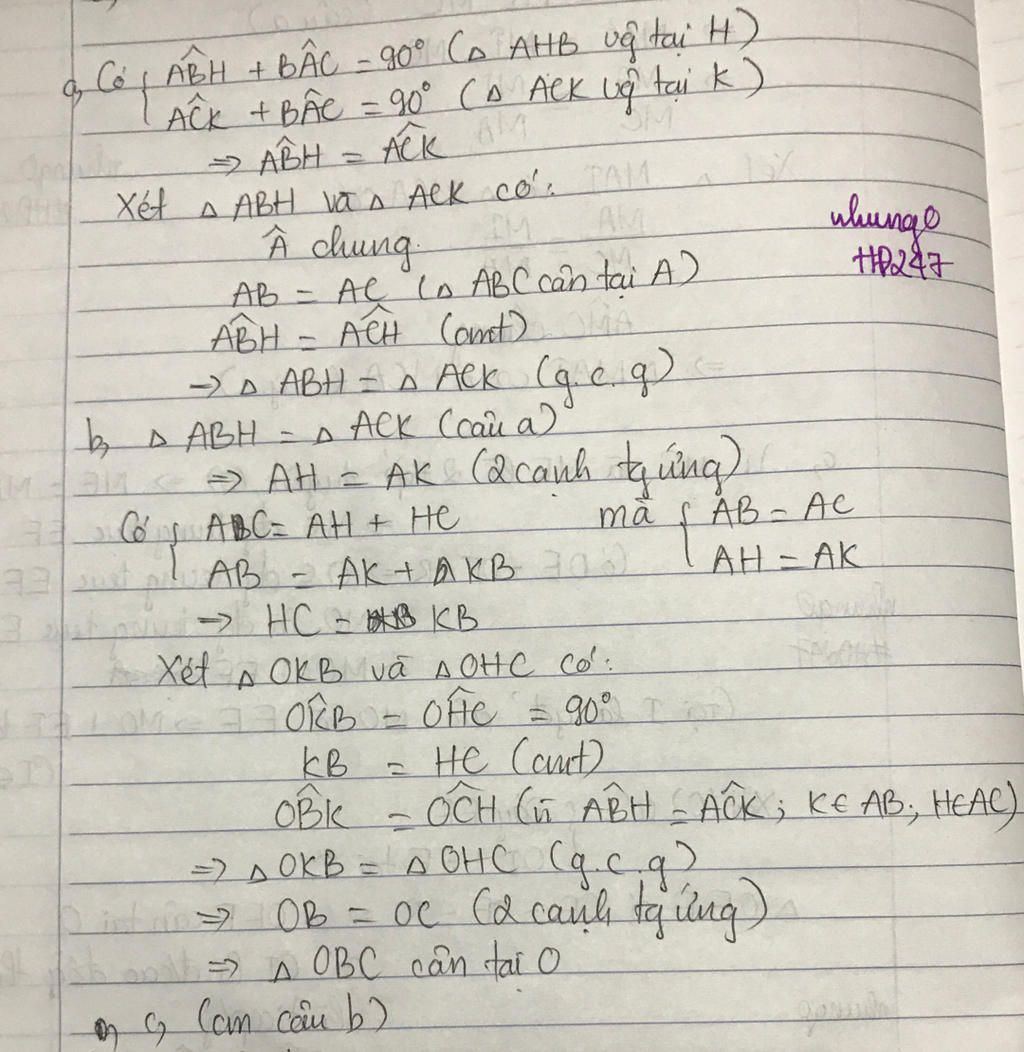 a, Có { AB̂H + BÂC = 90° (Δ AHB vg̑ tại H)
AĈK + BÂC = 90° (Δ ACK vg̑ tại K)
=> AB̂H = AĈK
Xét Δ ABH và Δ ACK có:
 chung.
AB = AC (Δ ABC cân tại A)
AB̂H = AĈH (cmt)
-> Δ ABH = Δ ACK (g.c.g)
nhung0
HP247
b, Δ ABH = Δ ACK (câu a)
=> AH = AK (2 cạnh tg ứng)
Có { AC = AH + HC mà { AB = AC
AB = AK + KB AH = AK
=> HC = KB
Xét Δ OKB và Δ OHC có:
OK̂B = OĤC = 90°
KB = HC (cmt)
OB̂K = OĈH (vì AB̂H = AĈK; K∈ AB; H∈AC)
=> Δ OKB = Δ OHC (g.c.g)
=> OB = OC (2 cạnh tg ứng)
=> Δ OBC cân tại O
c, (cm câu b)